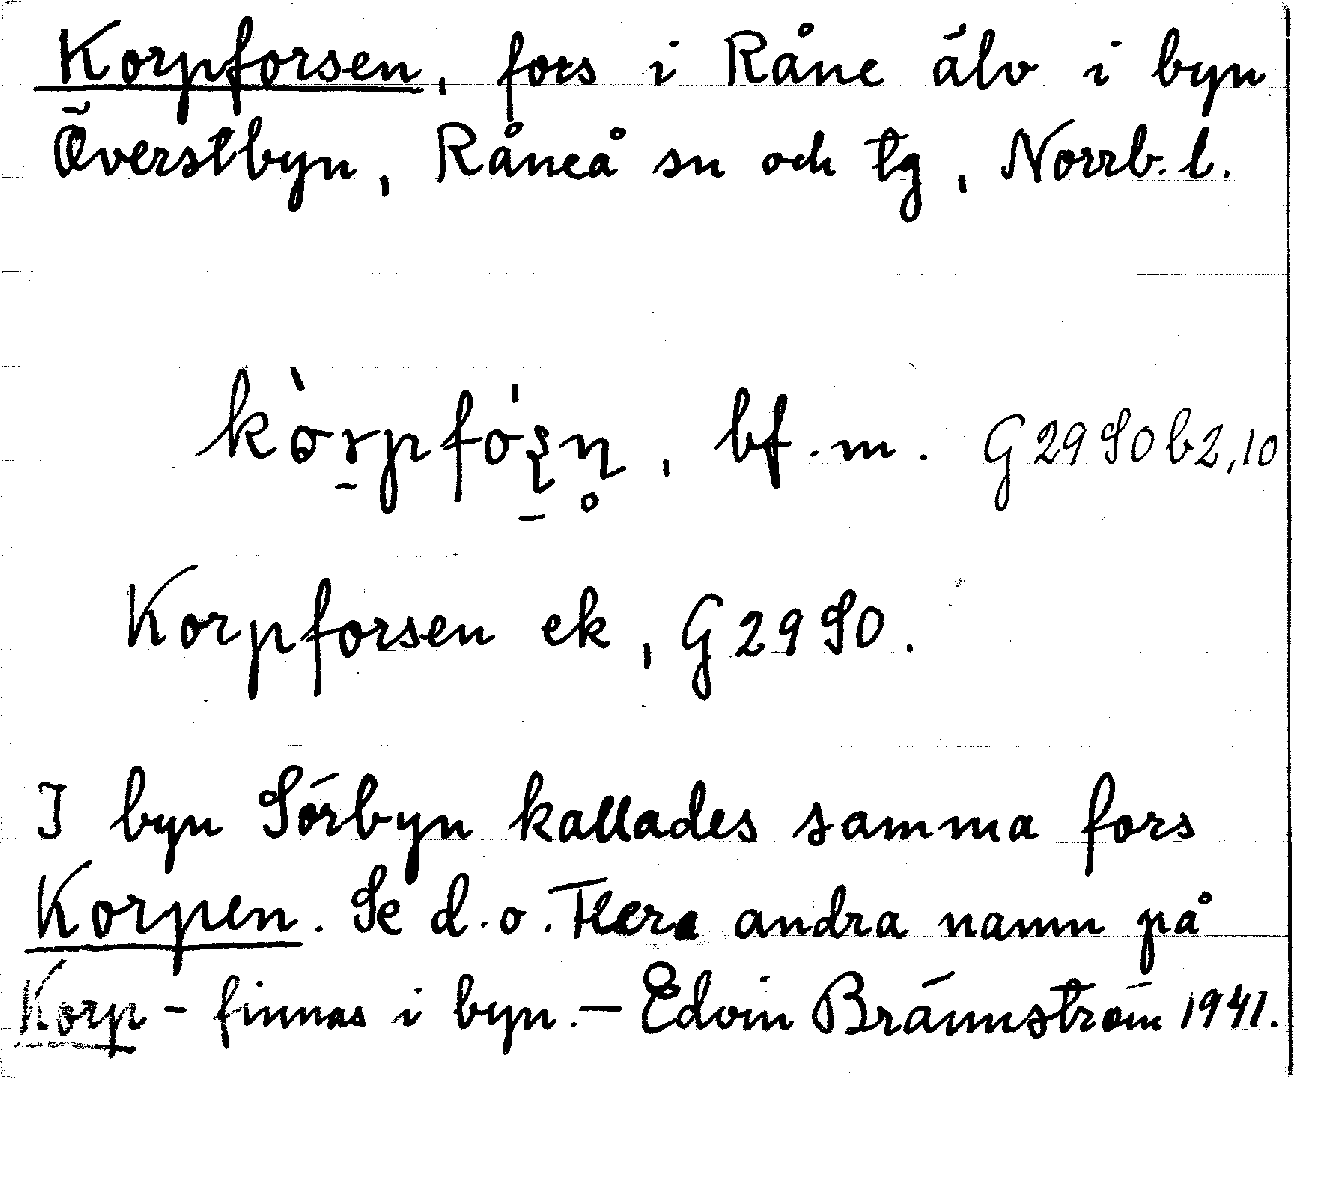 Korpforsen, fors i Råne älv i byn
Överstbyn, Råneå sn och tg, Norrb. l.
bf. m. G 29 S0 b2,10
Korpforsen ek, G 29 S0.
I byn Sörbyn kallades samma fors
Korpen. Se d. o. Flera andra namn på
Korp- finnas i byn. — Edvin Brännström 1941.